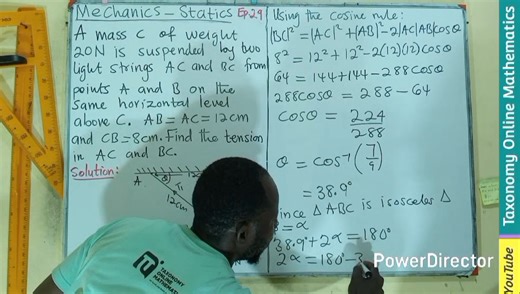 Mechanics – Statics Ep29
A mass C of weight
20N is suspended by two
light strings AC and BC from
points A and B on the
same horizontal level
above C. AB = AC = 12cm
and CB = 8cm. Find the tension
in AC and BC.
Solution:
A
T₁
12cm
Using the cosine rule:
|BC|² = |AC|² + |AB|² – 2|AC||AB|cosθ
8² = 12² + 12² – 2(12)(12)cosθ
64 = 144 + 144 – 288cosθ
288cosθ = 288 – 64
cosθ = 224
288
θ = cos⁻¹(7/9)
= 38.9°
ince △ABC is isosceles △
= α
38.9° + 2α = 180°
2α = 180° – 3
TAXONOMY
ONLINE
PowerDirector
YouTube
Taxonomy Online Mathematics